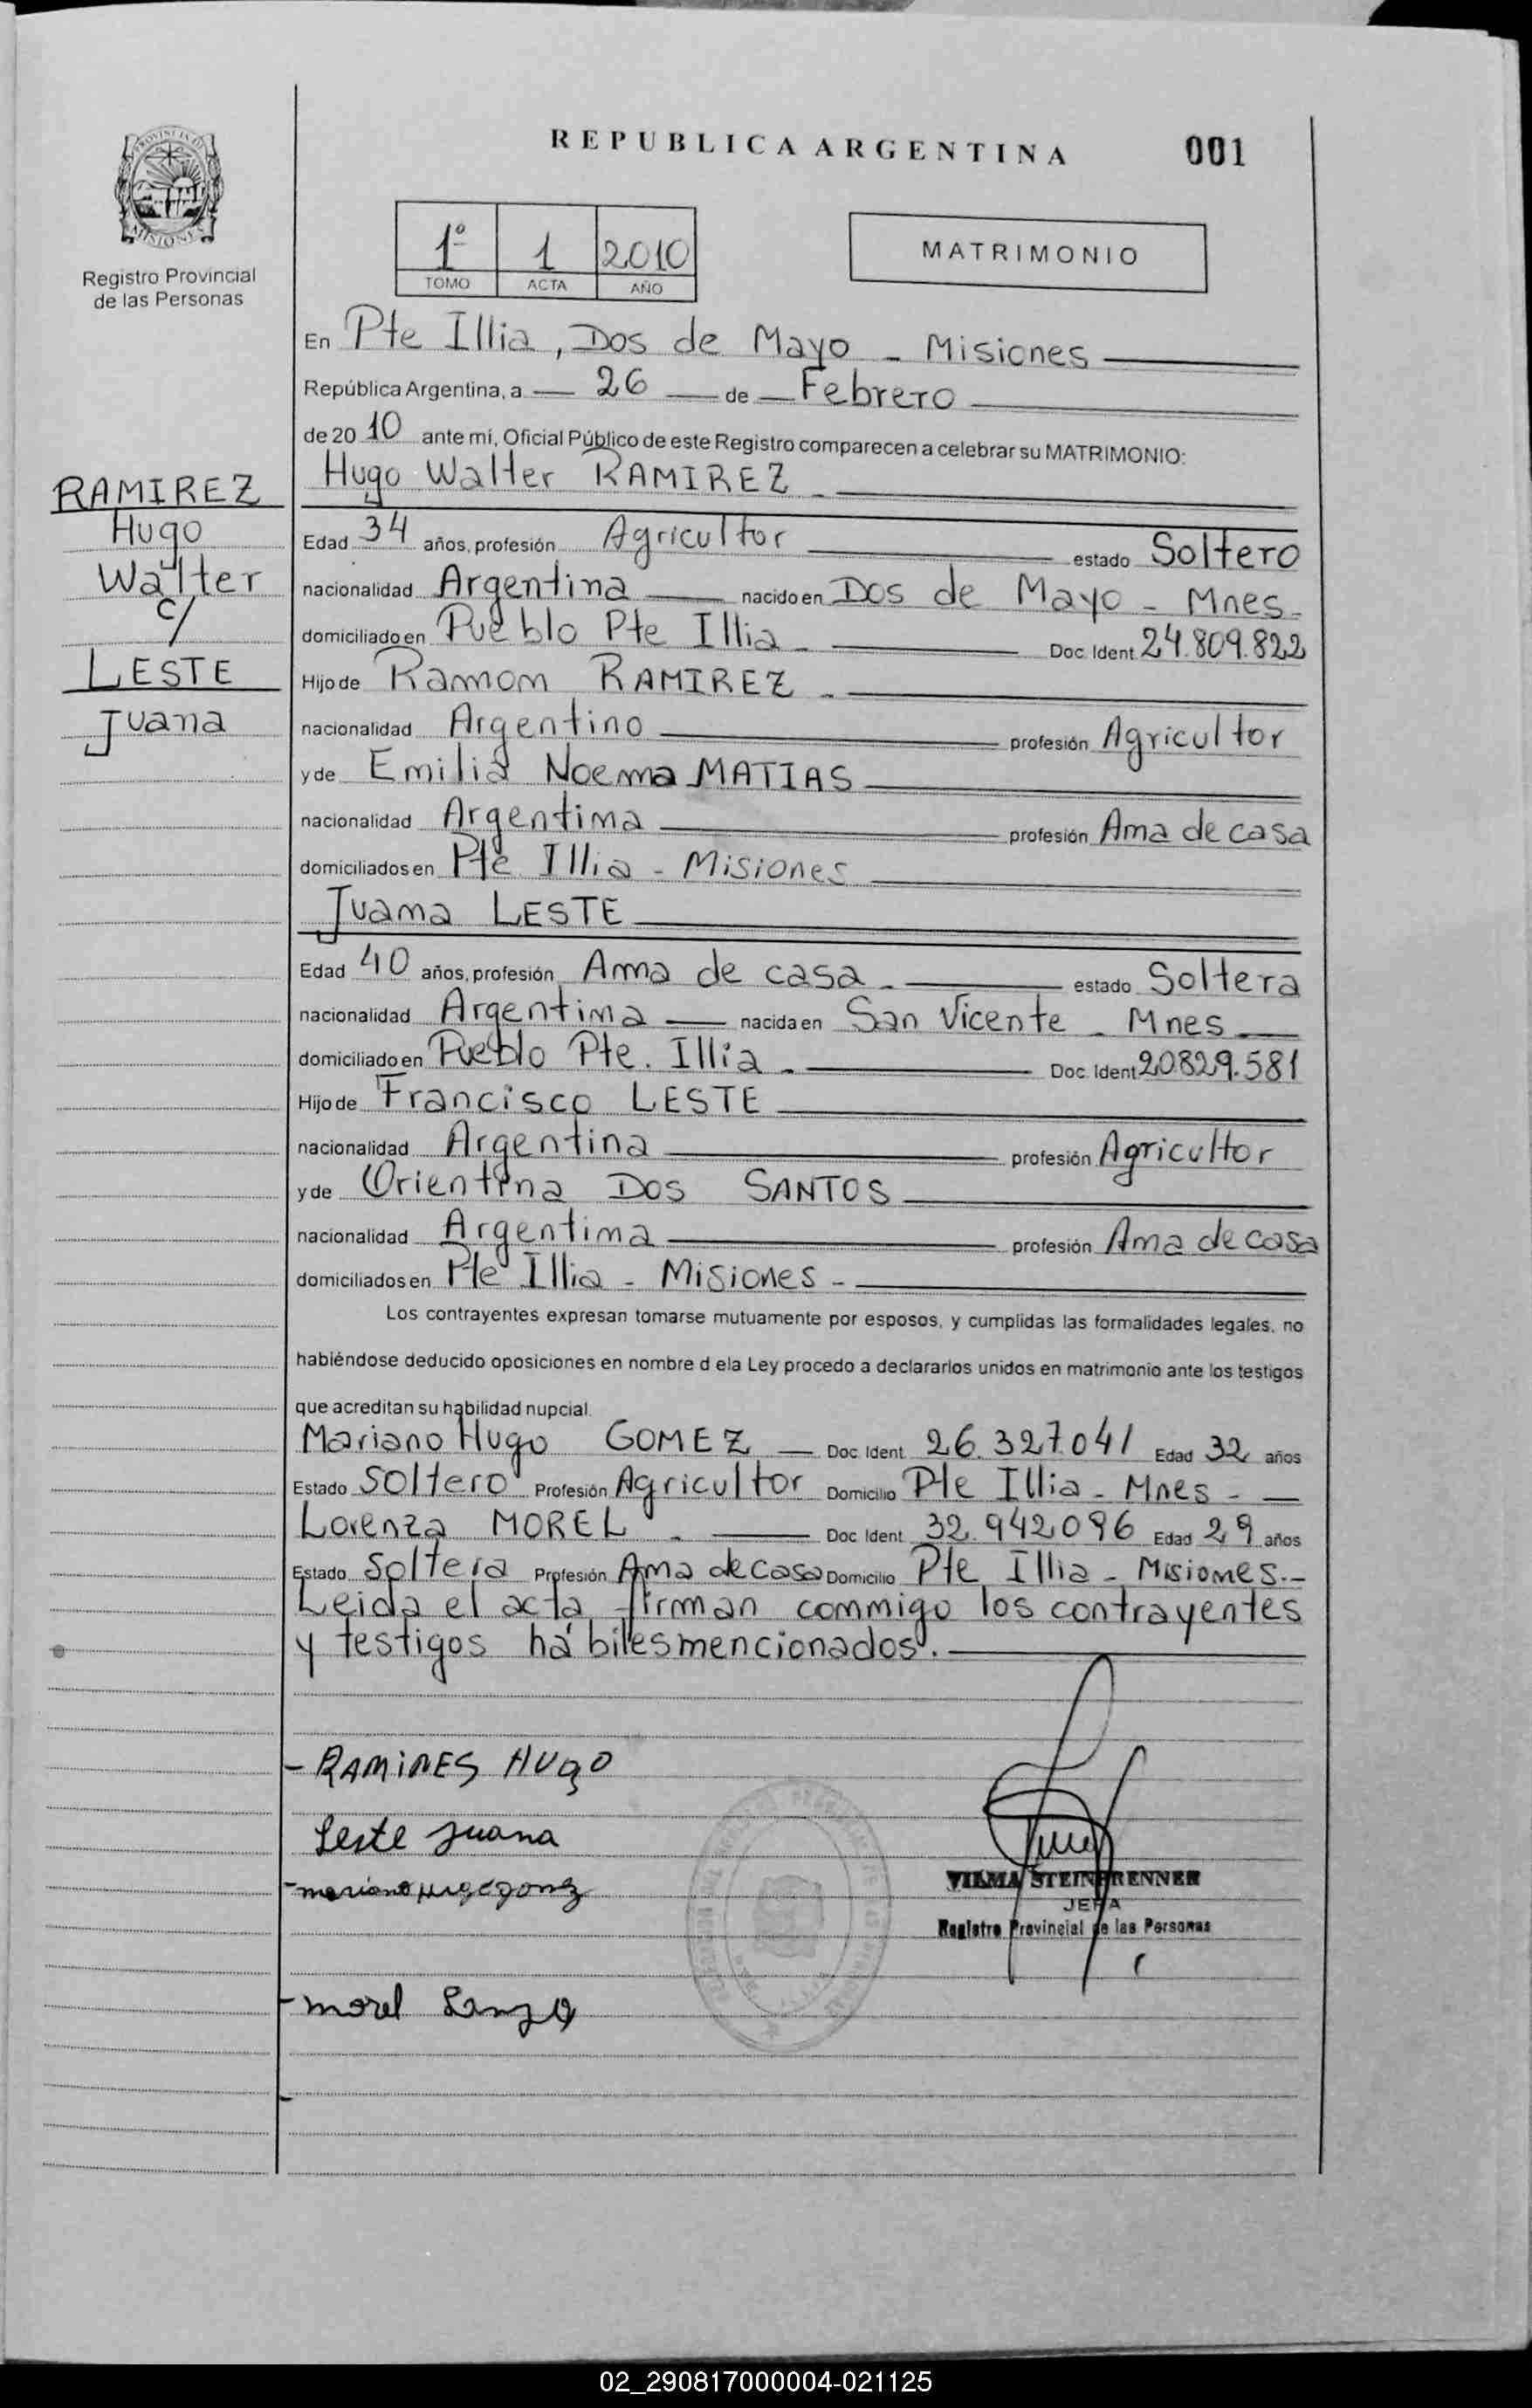 REPUBLICA ARGENTINA
001
PROVINCIA DE
MISIONES
Registro Provincial
de las Personas
1º 1 2010
TOMO ACTA AÑO
MATRIMONIO
En Pte Illia, Dos de Mayo - Misiones
República Argentina, a 26 de Febrero
de 20 10 ante mí, Oficial Público de este Registro comparecen a celebrar su MATRIMONIO:
RAMIREZ
Hugo
Walter
c/
LESTE
Juana
Hugo Walter RAMIREZ -
Edad 34 años, profesión Agricultor estado Soltero
nacionalidad Argentina nacido en Dos de Mayo - Mnes-
domiciliado en Pueblo Pte Illia - Doc. Ident 24.809.822
Hijo de Ramom RAMIREZ -
nacionalidad Argentino profesión Agricultor
y de Emilia Noema MATIAS
nacionalidad Argentima profesión Ama de casa
domiciliados en Pte Illia - Misiones
Juama LESTE
Edad 40 años, profesión Ama de casa - estado Soltera
nacionalidad Argentima nacida en San Vicente - Mnes
domiciliado en Pueblo Pte. Illia - Doc. Ident 20.829.581
Hijo de Francisco LESTE
nacionalidad Argentina profesión Agricultor
y de Orientina DOS SANTOS
nacionalidad Argentima profesión Ama de casa
domiciliados en Pte Illia - Misiones -
Los contrayentes expresan tomarse mutuamente por esposos, y cumplidas las formalidades legales, no
habiéndose deducido oposiciones en nombre d ela Ley procedo a declararlos unidos en matrimonio ante los testigos
que acreditan su habilidad nupcial.
Mariano Hugo GOMEZ - Doc. Ident. 26.327.041 Edad 32 años
Estado Soltero Profesión Agricultor Domicilio Pte Illia - Mnes -
Lorenza MOREL - Doc. Ident. 32.942096 Edad 29 años
Estado Soltera Profesión Ama de casa Domicilio Pte Illia - Misiomes.-
Leida el acta, firman commigo los contrayentes
y testigos hábiles mencionados.
- RAMiRES HUgO
Leste Juana
VILMA STEINBRENNER
JEFA
Registro Provincial de las Personas
- morel
02_290817000004-021125